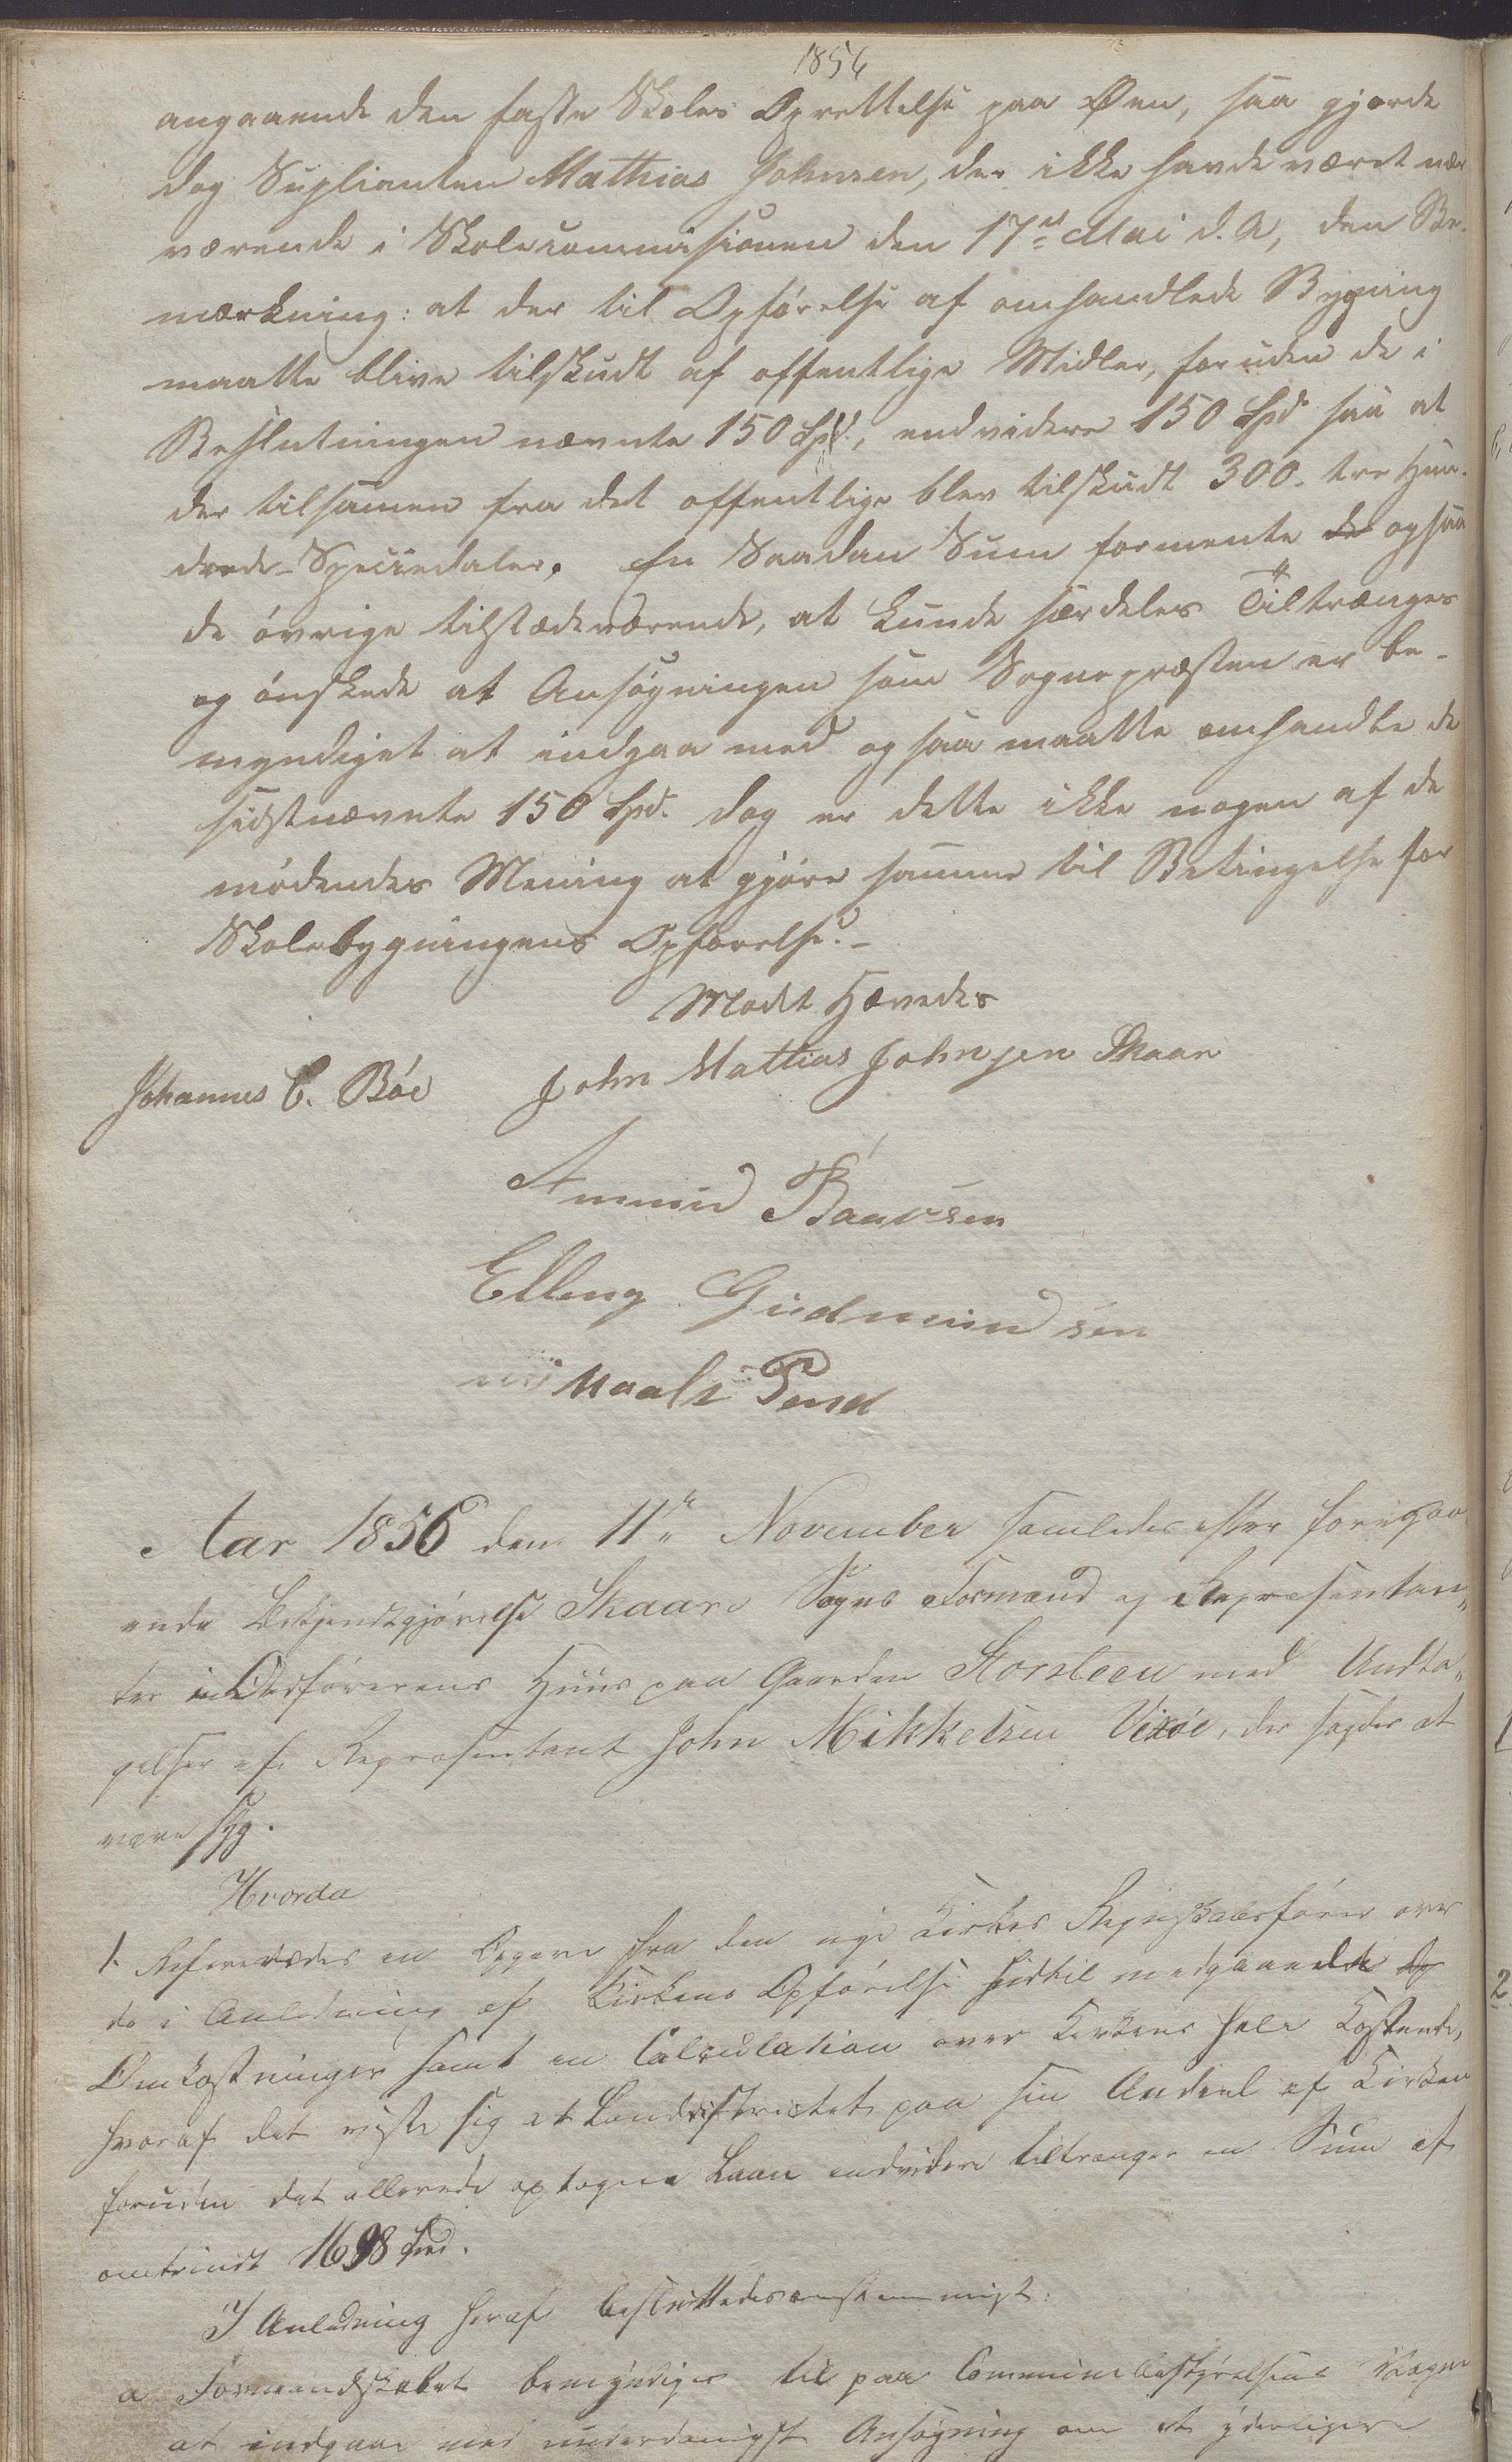 1856
angaaende den faste Skoles Oprettelse paa Øen, saa gjorde
dog Suplianten Mathias Johnsen, der ikke havde været nær
værende i Skolecommisionen den 17de Mai d. A, den Be-
mærkning: at der til Opførelse af omhandlede Bygning
maatte blive tilskudt af offentlige Midler, foruden de i
Beslutningen nævnte 150 Spd., endvidere 150 Spd. saa at
der tilsamen fra det offentlige blev tilskudt 300. tre Hun-
drede Speciedaler. En Saadan Sum formente de ogsaa
de øvrige tilstædeværende, at kunde særdeles Tiltrænges
og ønskede at Ansøgningen som Sognepræsten er be-
myndiget at indgaa med ogsaa maatte omhandle de
sidstnævnte 150 Spd. dog er dette ikke nogen af de
mødendes Mening at gjøre samme til Betingelse for
Skolebygningens Opførelse. -
Mødet Hævedes
Johannes C. Bøe John Mathias Johnsen Skaar
Amund Baarsen
Elling Gudmundsen
med Paaholden Pend
Aar 1856 den 11te November samledes efter foregaa
ende Bekjendtgjørelse Skaare Sogns Formænd og Repræsentan,,
ter i Ordførerens Huus paa Gaarden Storsteen med Undta,,
gelse af Repræsentant John Mikkelsen Vixøe, der sagdes at
være syg.
Hvorda
1. Refereredes en Opgave fra den nye Kirkes Regnskabsfører over
de i Anledning af Kirkens Opførelse hidtil medgaaede
Omkostninger samt en Calculation over Kirkens hele Kostende,
hvoraf det viste sig at Landdistrictet paa sin Andeel af Kirken
foruden det allerede optagne Laan endvidere tiltrænger en Sum af
omtrindt 1698 Spd.
I Anledning heraf besluttedes eenstemmigt:
a Formandskabet bemyndiges til paa Communebestyrelsens Vægne
at indgaae med underdanigst Ansøgning om et yderligere